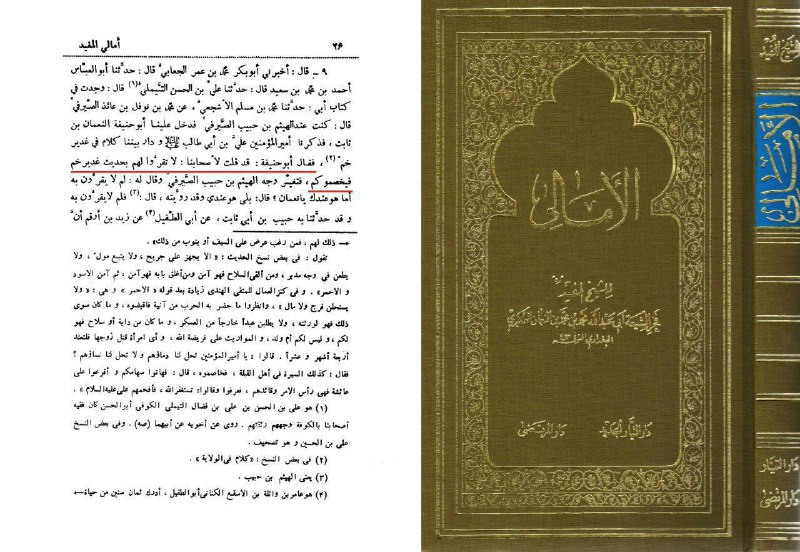 ٢٦
أمالي المفيد
٩ ـ قال : أخبرني أبوبكر محمد بن عمر الجعابي قال : حدّثنا أبوالعبّاس
أحمد بن محمد بن سعيد قال : حدّثنا عليّ بن الحسن التّيمليّ (١) قال : وجدت في
كتاب أبي : حدّثنا محمد بن مسلم الأشجعيّ ، عن محمد بن نوفل بن عائذ الصّيرفيّ
قال : كنت عندالهيثم بن حبيب الصّيرفيّ فدخل علينا أبوحنيفة النعمان بن
ثابت ، فذكرنا أميرالمؤمنين عليّ بن أبي طالب ﷺ و دار بيننا كلام في غدير
خمّ (٢) ، فقال أبوحنيفة : قد قلت لأصحابنا : لا تقرّوا لهم بحديث غديرخم
فيخصموكم ، فتغيّر وجه الهيثم بن حبيب الصّيرفيّ وقال له : لم لايقرّون به
أما هوعندك يانعمان ؟ قال : بلى هوعندي وقد رويته ، قال : (٣) فلم لايقرّون به
و قد حدّثنا به حبيب بن أبي ثابت ، عن أبي الطّفيل (٤) عن زيد بن أرقم أنّ
← ذلك لهم ، فمن رغب عرض على السيف أو يتوب من ذلك» .
تقول : فى بعض نسخ الحديث : «ألا يجهز على جريح ، ولا يتبع مولّ ، ولا
يطعن فى وجه مدبر ، ومن ألقى السلاح فهو آمن ومن أغلق بابه فهوآمن ، ثم آمن الاسود
و الاحمر» . و فى كنز العمال للمتقى الهندى زيادة بعد قوله «الاحمر » و هى : « ولا
يستحلن فرج ولا مال ، وانظروا ما حضر به الحرب من آنية فاقبضوه ، و ما كان سوى
ذلك فهو لورثته ، ولا يطلبن عبداً خارجاً من العسكر ، و ما كان من دابة أو سلاح فهو
لكم ، و ليس لكم أم ولد ، و المواريث على فريضة الله ، و أى امرأة قتل زوجها فلتعتد
أربعة أشهر و عشراً . قالوا : يا أميرالمؤمنين تحل لنا دماؤهم ولا تحل لنا نساؤهم ؟
فقال : كذلك السيرة فى أهل القبلة ، فخاصموه ، قال : فهاتوا سهامكم و أقرعوا على
عائشة فهى رأس الامر وقائدهم ، فعرفوا وقالوا: نستغفرالله ، فأفحمهم على عليه السلام» .
(١) هو على بن الحسن بن على بن فضال التيملى الكوفى أبوالحسن كان فقيه
أصحابنا بالكوفة ووجههم وثقتهم . روى عن أخويه عن أبيهما (صه) . وفى بعض النسخ
على بن الحسين و هو تصحيف .
(٢) فى بعض النسخ : «كلام فى الولاية » .
(٣) يعنى الهيثم بن حبيب .
(٤) هوعامر بن واثلة بن الاسقع الكنانى أبوالطفيل ، أدرك ثمان سنين من حياة ←
الأمالي
للشيخ المفيد
دار التيار الجديد
دار المرتضى
الشيخ المفيد
الأمالي
دار التيار
دار المرتضى